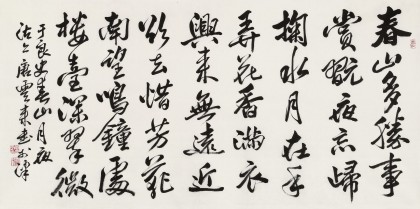 春山多勝事
賞翫夜忘歸
掬水月在手
弄花香滿衣
興來無遠近
欲去惜芳菲
南望鳴鐘處
樓臺深翠微
于良史春山月夜